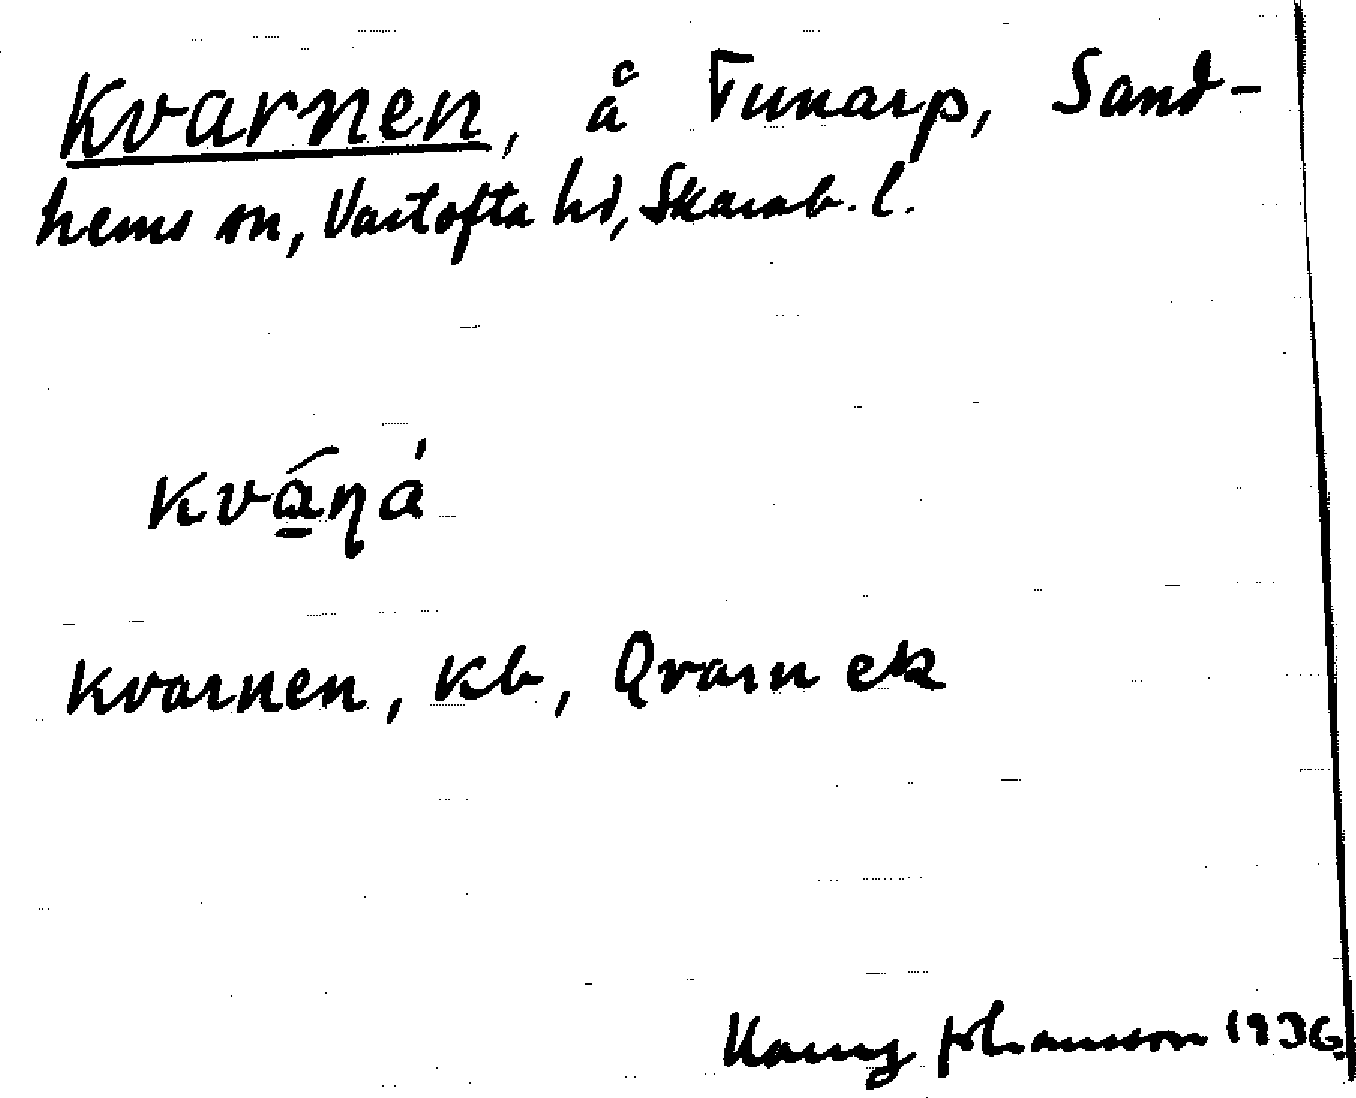 Kvarnen, å Tunarp, Sand-
hems sn, Vartofta hd, Skarab. l.
kvą́ɳá
Kvarnen, kb, Qvarn ek
Johansson 1936